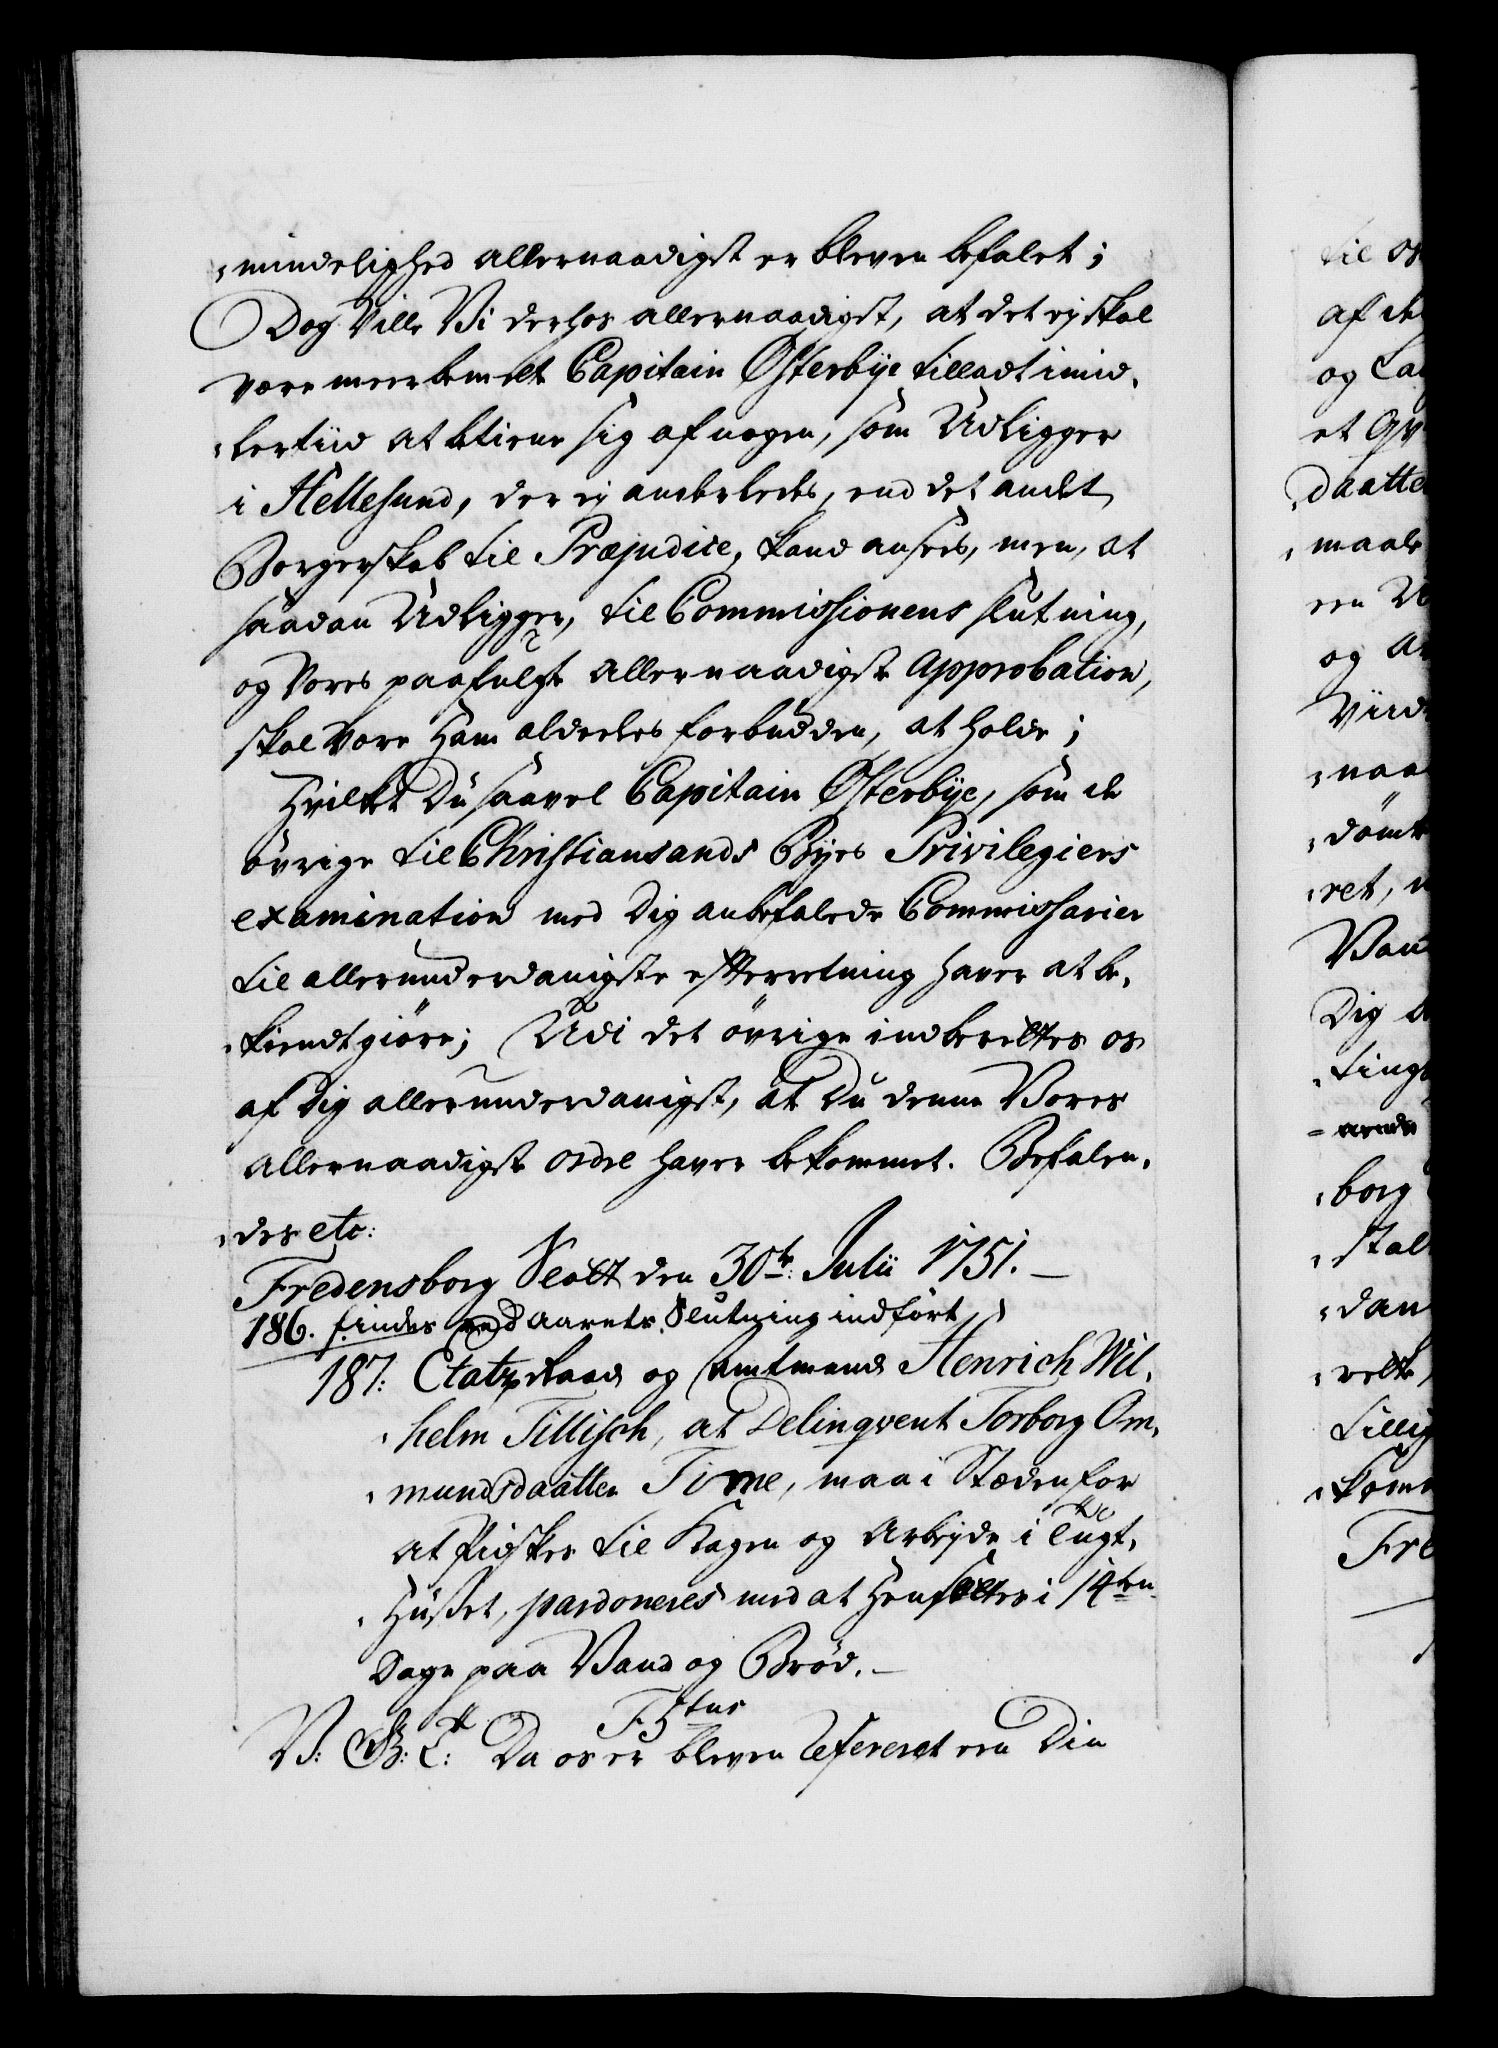 mindelighed allernaadigst er bleven befalet;
Dog Ville Vi derhos allernaadigst, at det ej skal
være meerbemelte Capitain Østerbÿe tilladt imid-
lertiid at betiene sig af nogen, som Udligger
i Hellesund, der ej anderledes, end det andet
Borgerskab til Præjudice, kand ansees, men, at
saadan Udligger, til Commissionens slutning,
og Vores paafulgte allernaadigste Approbation,
skal være Ham aldeeles forbudden, at holde;
Hvilket Du saavel Capitain Østerbÿe, som de
övrige til Christiansands Bÿes Privilegiers
examination med Dig anbefalede Commissarier
til allerunderdanigste efterretning haver at be-
kiendtgiöre; Udi det övrige indberettes os
af Dig allerunderdanigst, at Du denne Vores
allernaadigste ordre haver bekommet. Befalen-
des etc:
Fredensborg Slott den 30te: Julii 1751.
186. findes ved Aarets Slutning indfört
187: Etatzraad og Amtmand Henrich Wil-
helm Tillisch, at Delinqvent Torborg Om-
mundsdaatter Time, maa i Stæden for
at pidskes til Kagen og Arbejde i Tugt-
Huset, pardoneres med at Hensættes i 14ten
Dage paa Vand og Bröd.
F. 5tus
V: G: T: Da os er bleven refereret een Din